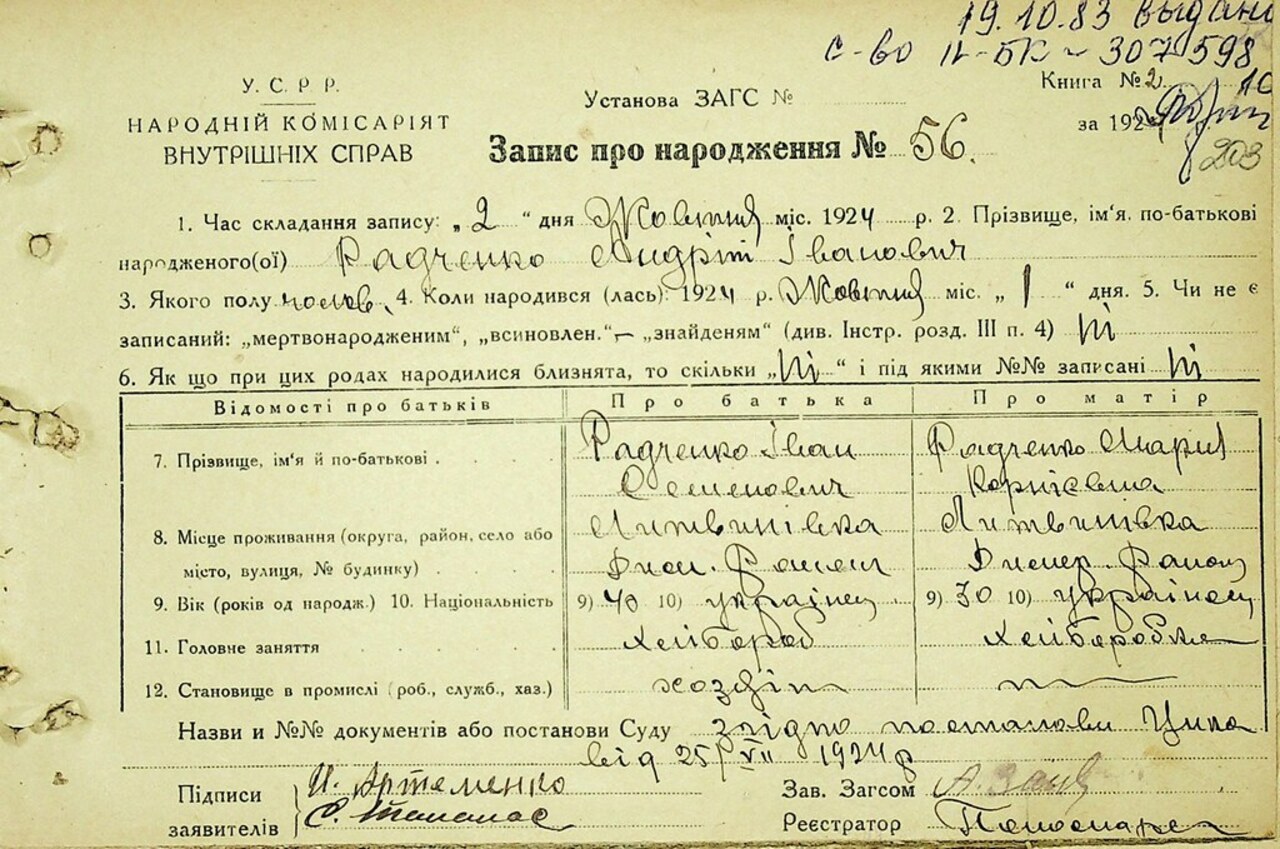 19.10.83 выдано
с-во II-БК № 307598
У. С. Р. Р.
НАРОДНІЙ КОМІСАРІЯТ
ВНУТРІШНІХ СПРАВ
Установа ЗАГС №
Книга № 2
за 192
203
Запис про народження № 56.
1. Час складання запису: „2“ дня Жовтня міс. 1924 р. 2. Прізвище, ім‘я, по-батькові
народженого(ої) Радченко Андрій Іванович
3. Якого полу чолов. 4. Коли народився (лась): 1924 р. Жовтня міс. „1“ дня. 5. Чи не є
записаний: „мертвонародженим“, „всиновлен.“ — „знайденям“ (див. Інстр. розд. III п. 4) Ні
6. Як що при цих родах народилися близнята, то скільки „Ні“ і під якими №№ записані Ні
Відомості про батьків Про батька Про матір
7. Прізвище, ім‘я й по-батькові Радченко Іван Радченко Мария
Семенович Корнієвна
8. Місце проживання (округа, район, село або Литвинівка Литвинівка
місто, вулиця, № будинку) Димер. Району
9. Вік (років од народж.) 10. Національність 9) 40 10) українец 9) 30 10) українец
11. Головне заняття Хлібороб Хліборобка
12. Становище в промислі (роб., служб., хаз.) хоздін
Назви и №№ документів або постанови Суду згідно постанови Цика
від 25/VII 1924 р
Підписи
заявителів
И. Артеменко
С.
Зав. Загсом А.
Реєстратор